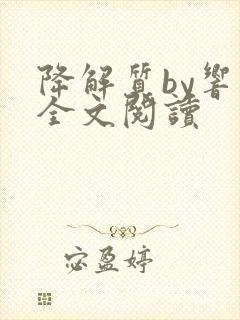 降解質by響
全文閱讀
宓盈婷